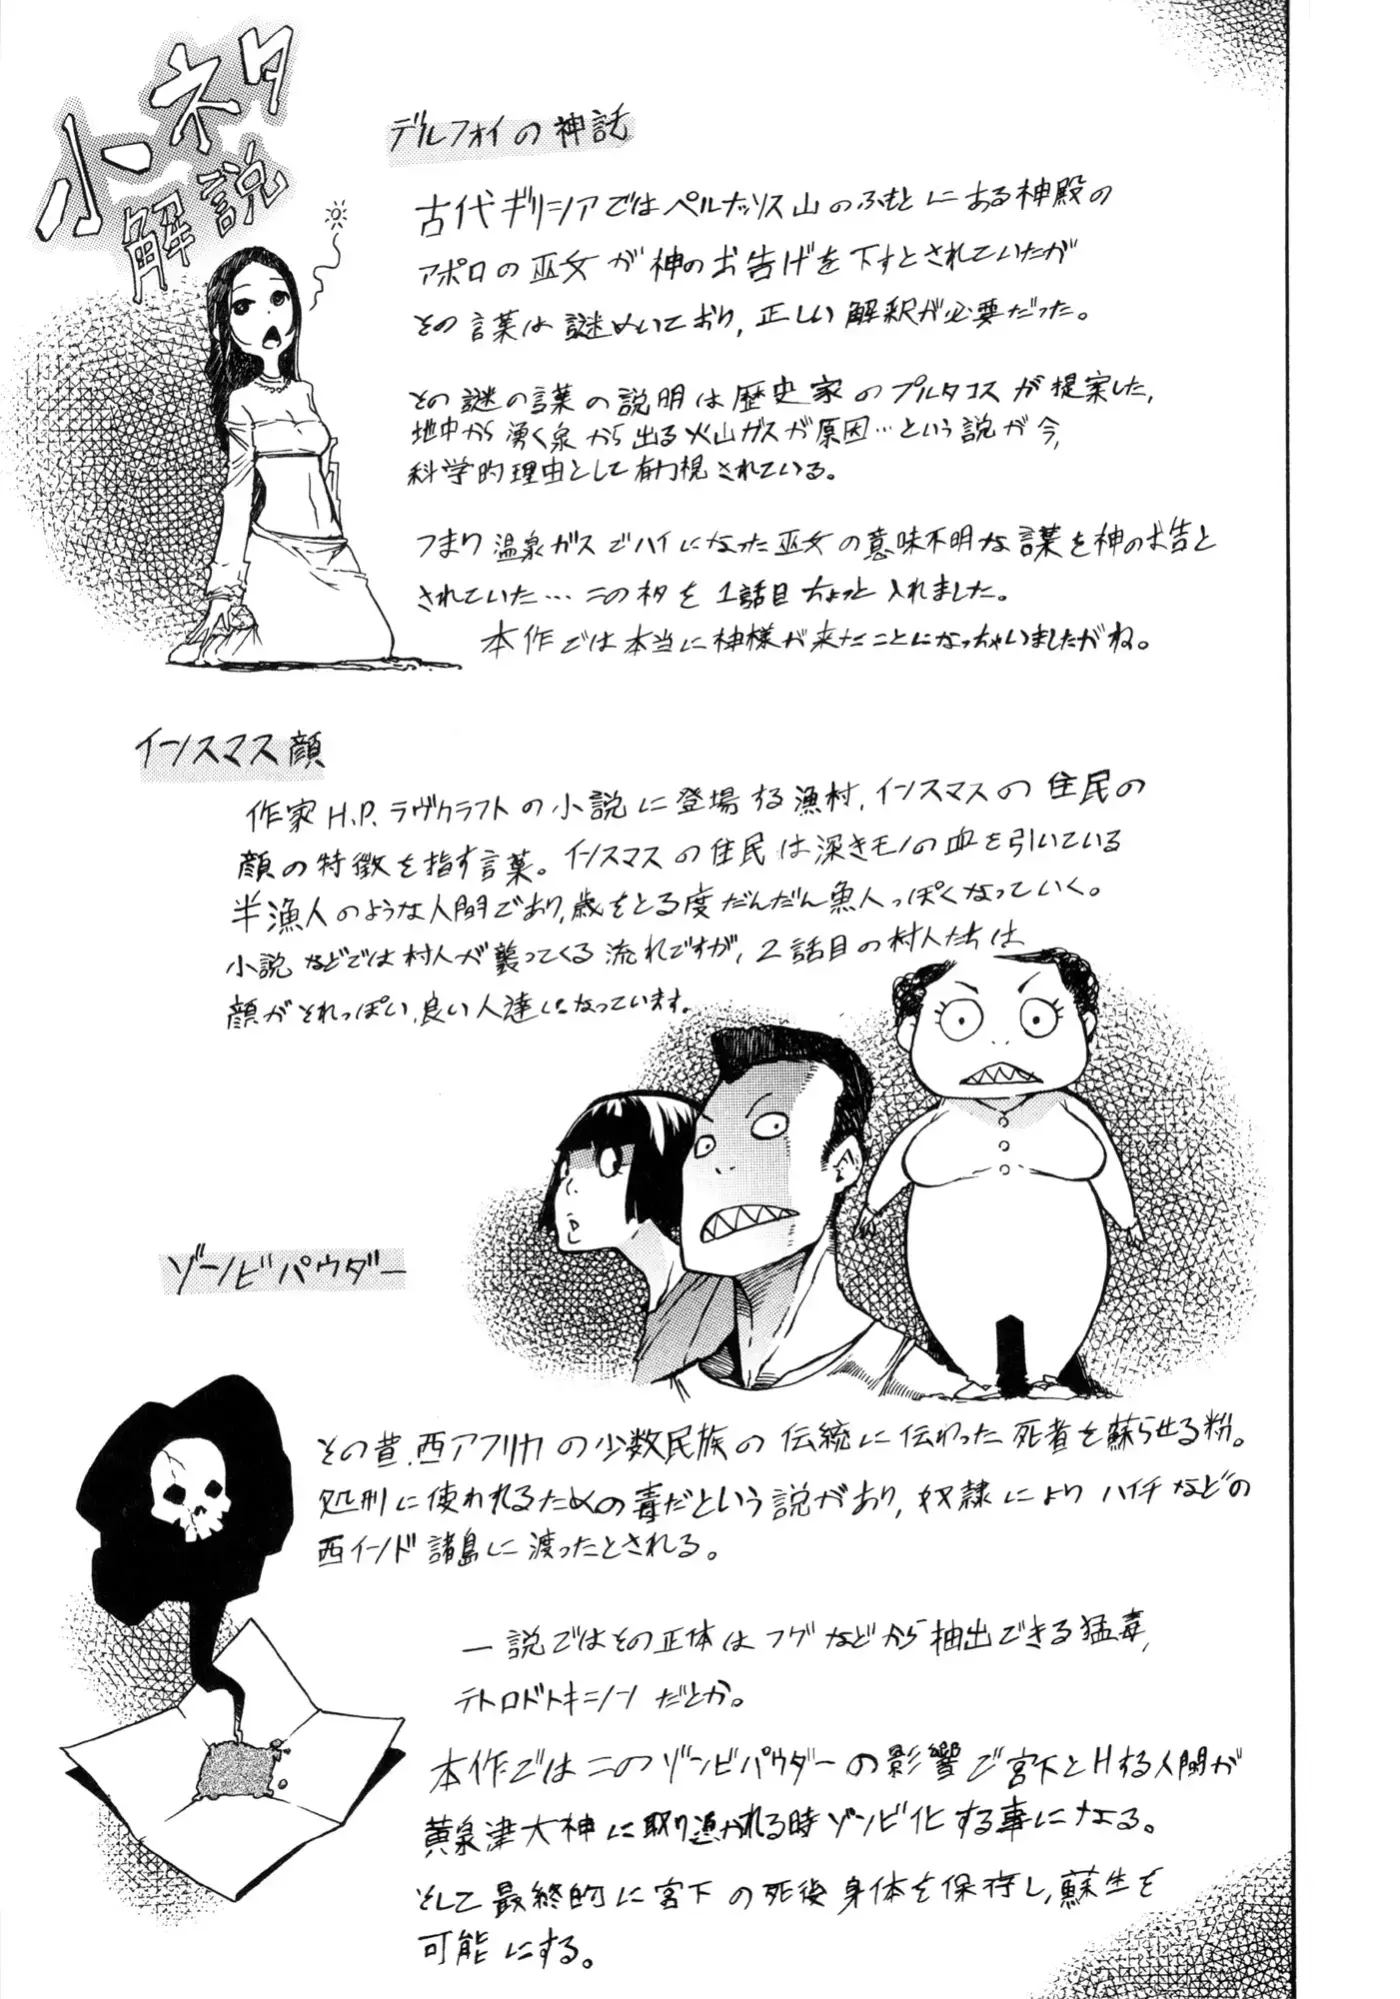 小ネタ
解説
デルフォイの神託
古代ギリシアではペルナッソス山のふもとにある神殿の
アポロの巫女が神のお告げを下すとされていたが
その言葉は謎めいており,正しい解釈が必要だった。
その謎の言葉の説明は歴史家のプルタコスが提案した,
地中から湧く泉から出る火山ガスが原因…という説が今,
科学的理由として有力視されている。
つまり温泉ガスでハイになった巫女の意味不明な言葉を神のお告と
されていた…このネタを1話目ちょっと入れました。
本作では本当に神様が来たことになっちゃいましたがね。
インスマス顔
作家H.P.ラヴクラフトの小説に登場する漁村,インスマスの住民の
顔の特徴を指す言葉。インスマスの住民は深きモノの血を引いている
半漁人のような人間であり,歳をとる度だんだん魚人っぽくなっていく。
小説などでは村人が襲ってくる流れですが,2話目の村人たちは
顔がそれっぽい,良い人達になっています。
ゾンビパウダー
その昔,西アフリカの少数民族の伝統に伝わった死者を蘇らせる粉。
処刑に使われるための毒だという説があり,奴隷によりハイチなどの
西インド諸島に渡ったとされる。
一説ではその正体はフグなどから抽出できる猛毒,
テトロドトキシンだとか。
本作ではこのゾンビパウダーの影響で宮下とHする人間が
黄泉津大神に取り憑かれる時ゾンビ化する事になる。
そして最終的に宮下の死後身体を保存し,蘇生を
可能にする。